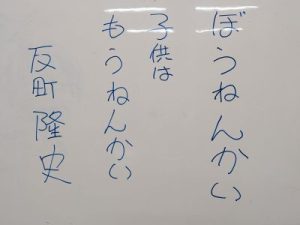 ぼうねんかい
子供は
もうねんかい
反町隆史